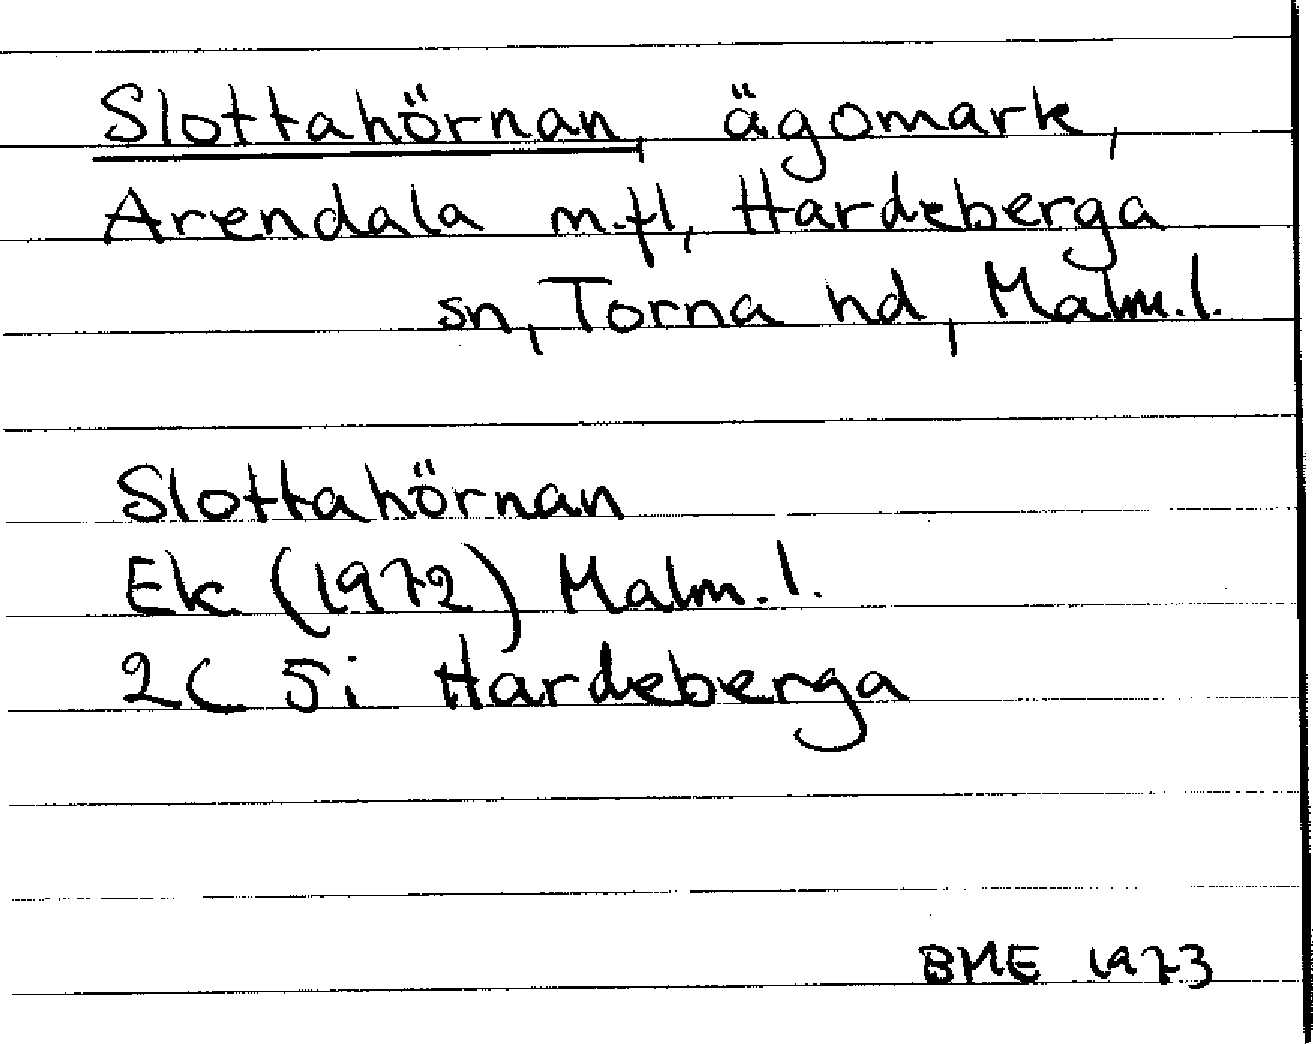 Slottahörnan, ägomark,
Arendala m.fl, Hardeberga
sn, Torna hd, Malm.l.
Slottahörnan
Ek (1972) Malm.l.
2C 5i Hardeberga
BME 1973